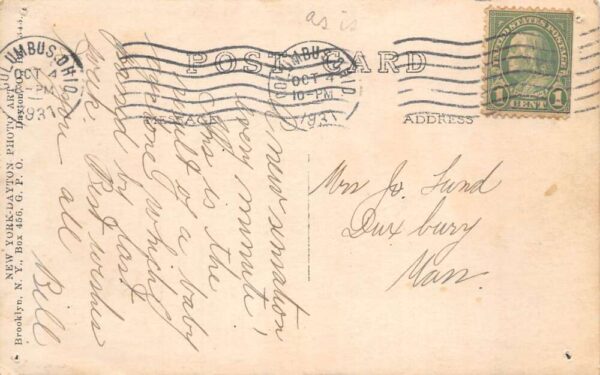 as is
COLUMBUS, OHIO
OCT 4
PM
1931
COLUMBUS, OHIO
OCT 4
10-PM
1931
POST CARD
MESSAGE
ADDRESS
UNITED STATES POSTAGE
1 CENT 1
NEW YORK-DAYTON PHOTO ART
Dayton, O.,
Brooklyn, N. Y., Box 456, G. P. O.
a new sensation
every minute!
This is the
result of a baby
cyclone which
passed by last
week. Best wishes
to you all
Bill
Mrs Jo. Lund
Duxbury
Mass.